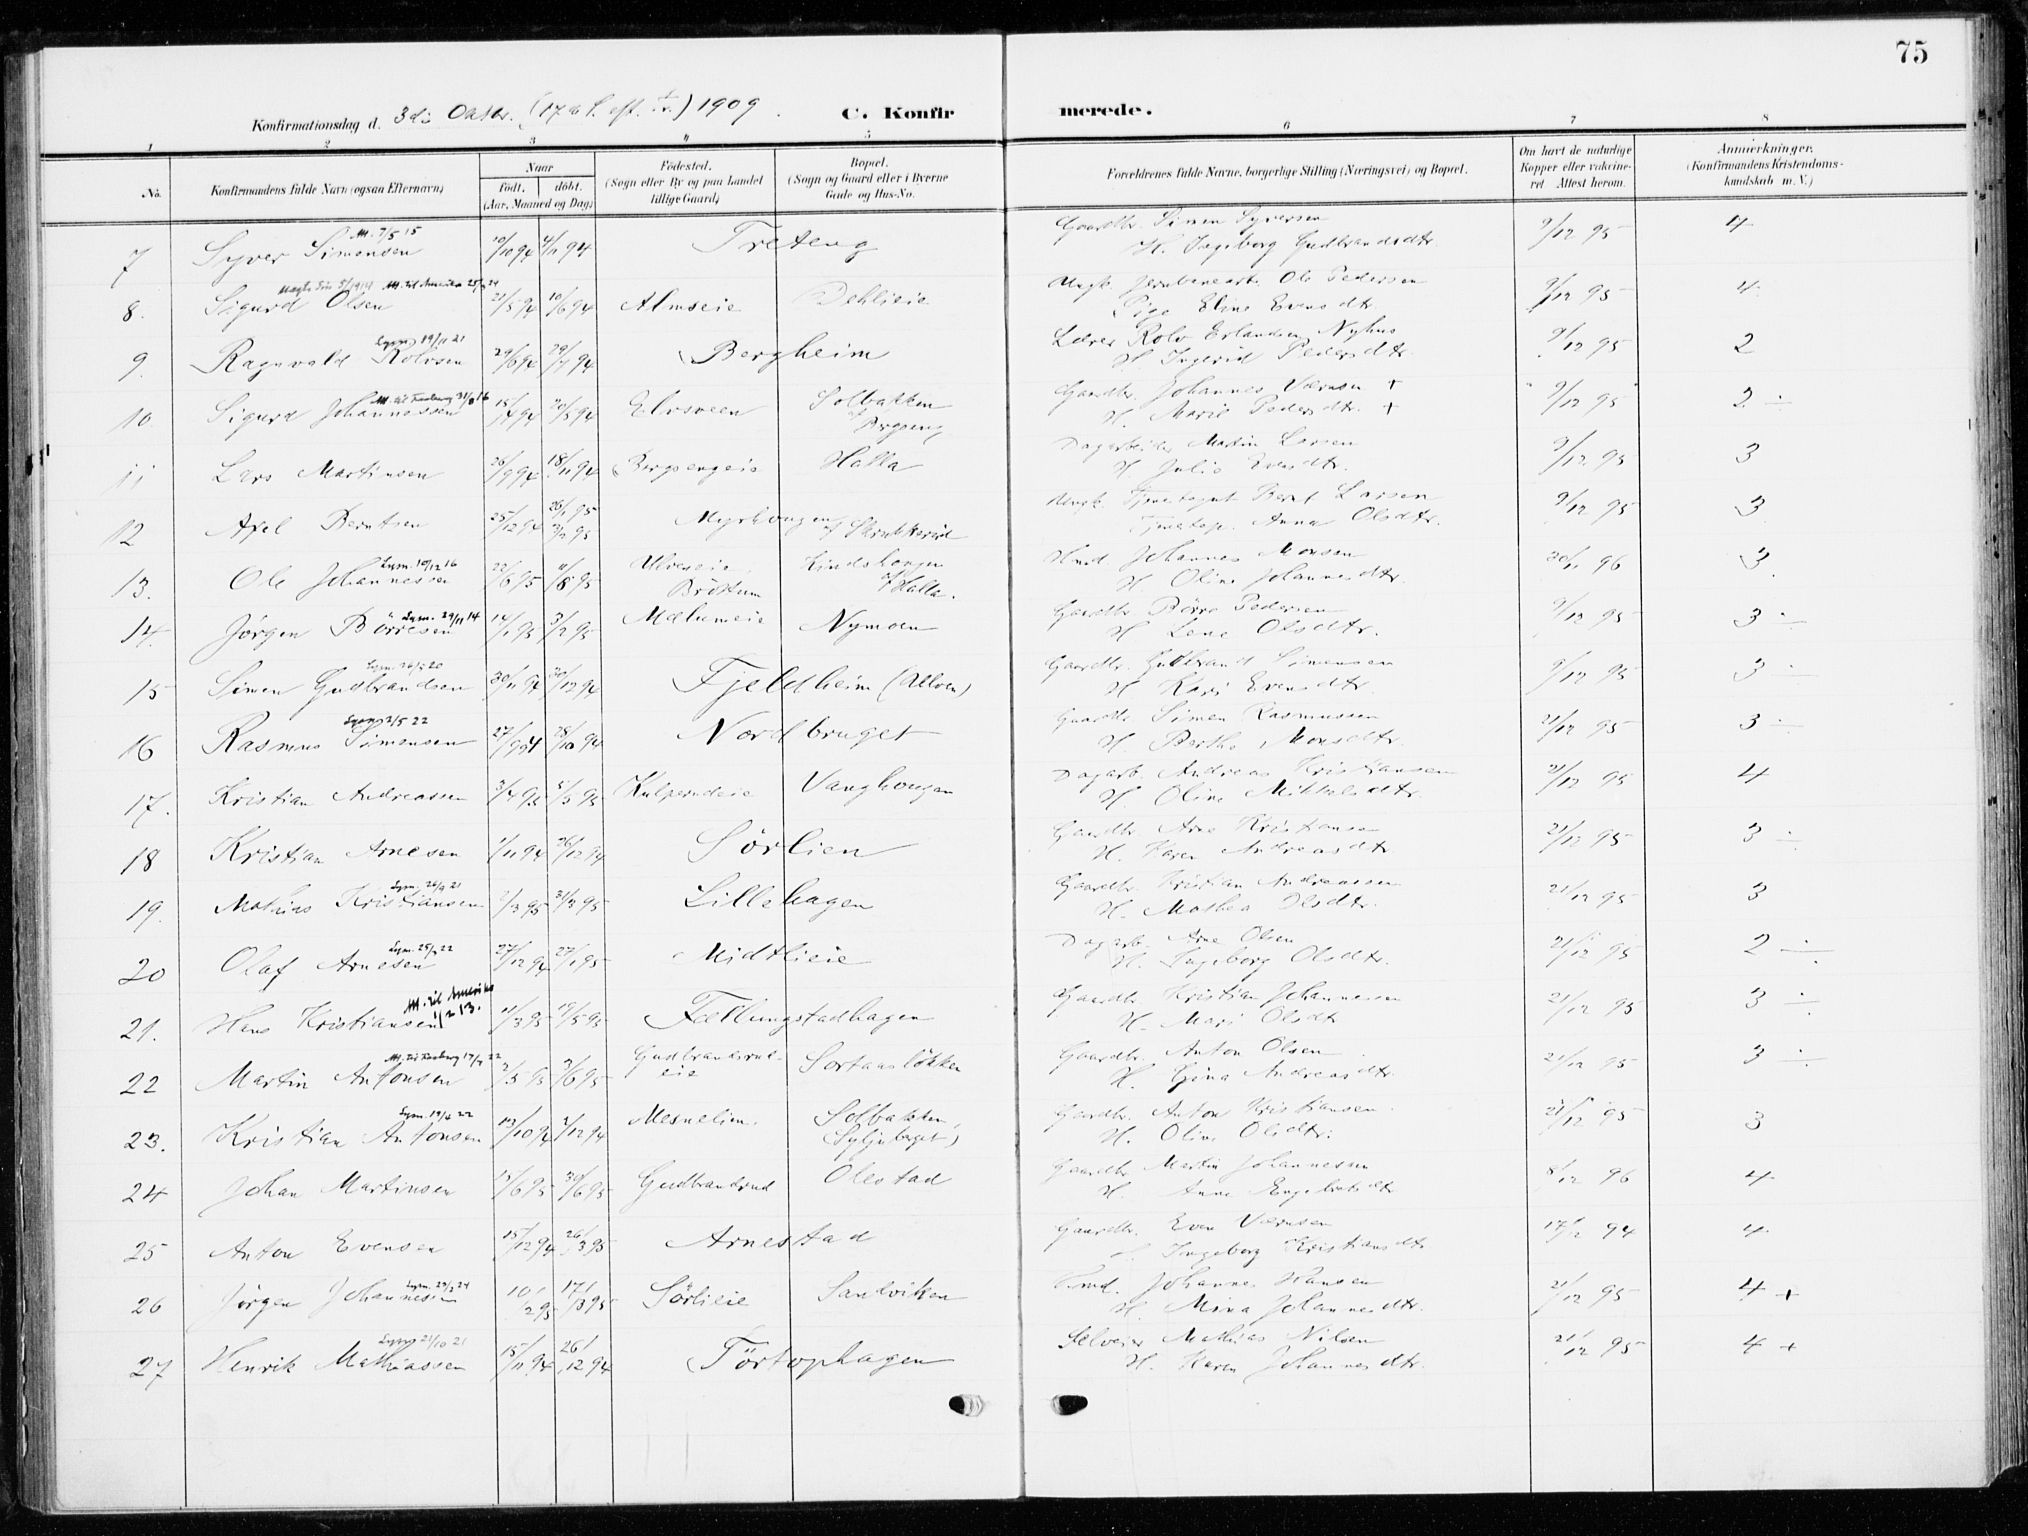 75
Konfirmationsdag d. 3die Oktbr. (17 S. eft. Tr.) 1909. C. Konfirmerede.
1 2 3 4 5 6 7 8
No. Konfirmandens fulde Navn (ogsaa Efternavn) Naar födt. döbt. (Aar, Maaned og Dag) Födested. (Sogn eller By og paa Landet tillige Gaard) Bopæl. (Sogn og Gaard eller i Byerne Gade og Hus-No. Forældrenes fulde Navne, borgerlige Stilling (Næringsvei) og Bopæl. Om havt de naturlige Kopper eller vakcineret. Attest herom. Anmærkninger. (Konfirmandens Kristendomskundskab m. V.)
7 Syver Simensen M. 7/5 15 10/10 94 4/11 94 Treteng Gaardbr. Simen Syversen H. Ingeborg Gudbrandsdtr. 9/12 95 4
8. Sigurd Olsen M. til Amerika 21/5 94 10/6 94 Almseie Dehlieie Ungk. Jernbanearb. Ole Pedersen Pige Eline Evensdtr. 9/12 95 4
9. Ragnvald Rolvsen Lysm. 19/11 21 29/6 94 29/7 94 Bergheim Lærer Rolv Erlandsen Nyhus H. Ingerid Pedersdtr. 9/12 95 2
10 Sigurd Johannessen 15/4 94 20/5 94 Elvsveen Solbakken af Bergseng Gaardbr. Johannes Værnsen + H. Marie Pedersdtr. + 9/12 95 2 ÷
11 Lars Martinsen 26/9 94 18/11 94 Bergsengeie Halla Dagarbeider Martin Larsen H. Julie Evensdtr. 9/12 95 3
12 Axel Berntsen 25/12 94 26/1 95 3/2 95 Myrhaugen af Skrukkerud Ungk. Bernt Larsen Anna Olsdtr. 9/12 95 3
13. Ole Johannessen Lysm. 10/12 16 22/6 95 11/8 95 Ulveseie Bröttum Lindshaugen af Halla. Hmd. Johannes Monsen H. Oline Johannesdtr. 20/11 96 3
14. Jörgen Börresen Lysm. 29/11 14 14/1 95 3/2 95 Mælumeie Nymoen Gaardbr. Börre Pedersen H. Lene Olsdtr. 9/12 95 3 ÷
15 Simen Gudbrandsen 30/11 94 30/12 94 Fjeldheim (Alloen) Gaardbr. Gudbrand Simensen H. Kari Evensdtr. 9/12 95 3 ÷
16 Rasmus Simensen Lysm 2/5 22 27/9 94 28/10 94 Nordbruget Gaardbr. Simen Rasmussen H. Berthe Monsdtr. 21/12 95 3 ÷
17. Kristian Andreassen 3/4 95 5/5 95 Kulperudeie Vanghaugen Dagarb. Andreas Kristiansen H. Oline Mikkelsdtr. 21/12 95 4
18 Kristian Arnesen 1/11 94 26/12 94 Sörlien Gaardbr. Arne Kristiansen H. Karen Andreasdtr. 21/12 95 3 ÷
19. Mathias Kristiansen 2/3 95 31/3 95 Lillehagen Gaardbr. Kristian Andreassen H. Mathea Olsdtr. 21/12 95 3
20 Olaf Arnesen 27/12 94 27/1 95 Midtlieie Dagarb. Arne Olsen H. Ingeborg Olsdtr. 21/12 95 2 ÷
21. Hans Kristiansen M. til Amerika 1/2 13. 11/3 95 19/5 95 Fællungstadhagen Gaardbr. Kristian Johannessen H. Mari Olsdtr 21/12 95 3 ÷
22 Martin Antonsen 2/5 95 3/6 95 Gudbrandsrudeie Sortaaslökken Gaardbr. Anton Olsen H. Gina Andreasdtr. 21/12 95 3 ÷
23. Kristian Antonsen Lysm. 19/4 22 13/10 94 2/12 94 Mesnelien. Solbakken, (Syljuberget) Gaardbr. Anton Kristiansen. H. Oline Olsdtr. 21/12 95 3
24 Johan Martinsen 15/6 95 30/6 95 Gudbrandsrud Olestad Gaardbr. Martin Johannessen H. Anne Engebretsdtr. 8/12 96 4
25 Anton Evensen 15/12 94 26/3 95 Arnestad Gaardbr. Even Værnsen H. Ingeborg Kristiansdtr. 17/12 94 4
26 Jörgen Johannesen 10/2 95 17/3 95 Sörlieie Sandviken Hmd. Johannes Hansen H. Mina Johannesdtr. 21/12 95 4 +
27 Henrik Mathiassen Lysm 21/10 21 15/11 94 26/12 94 Törtophagen Selveier Mathias Nilsen H. Karen Johannesdtr. 21/12 95 4 +